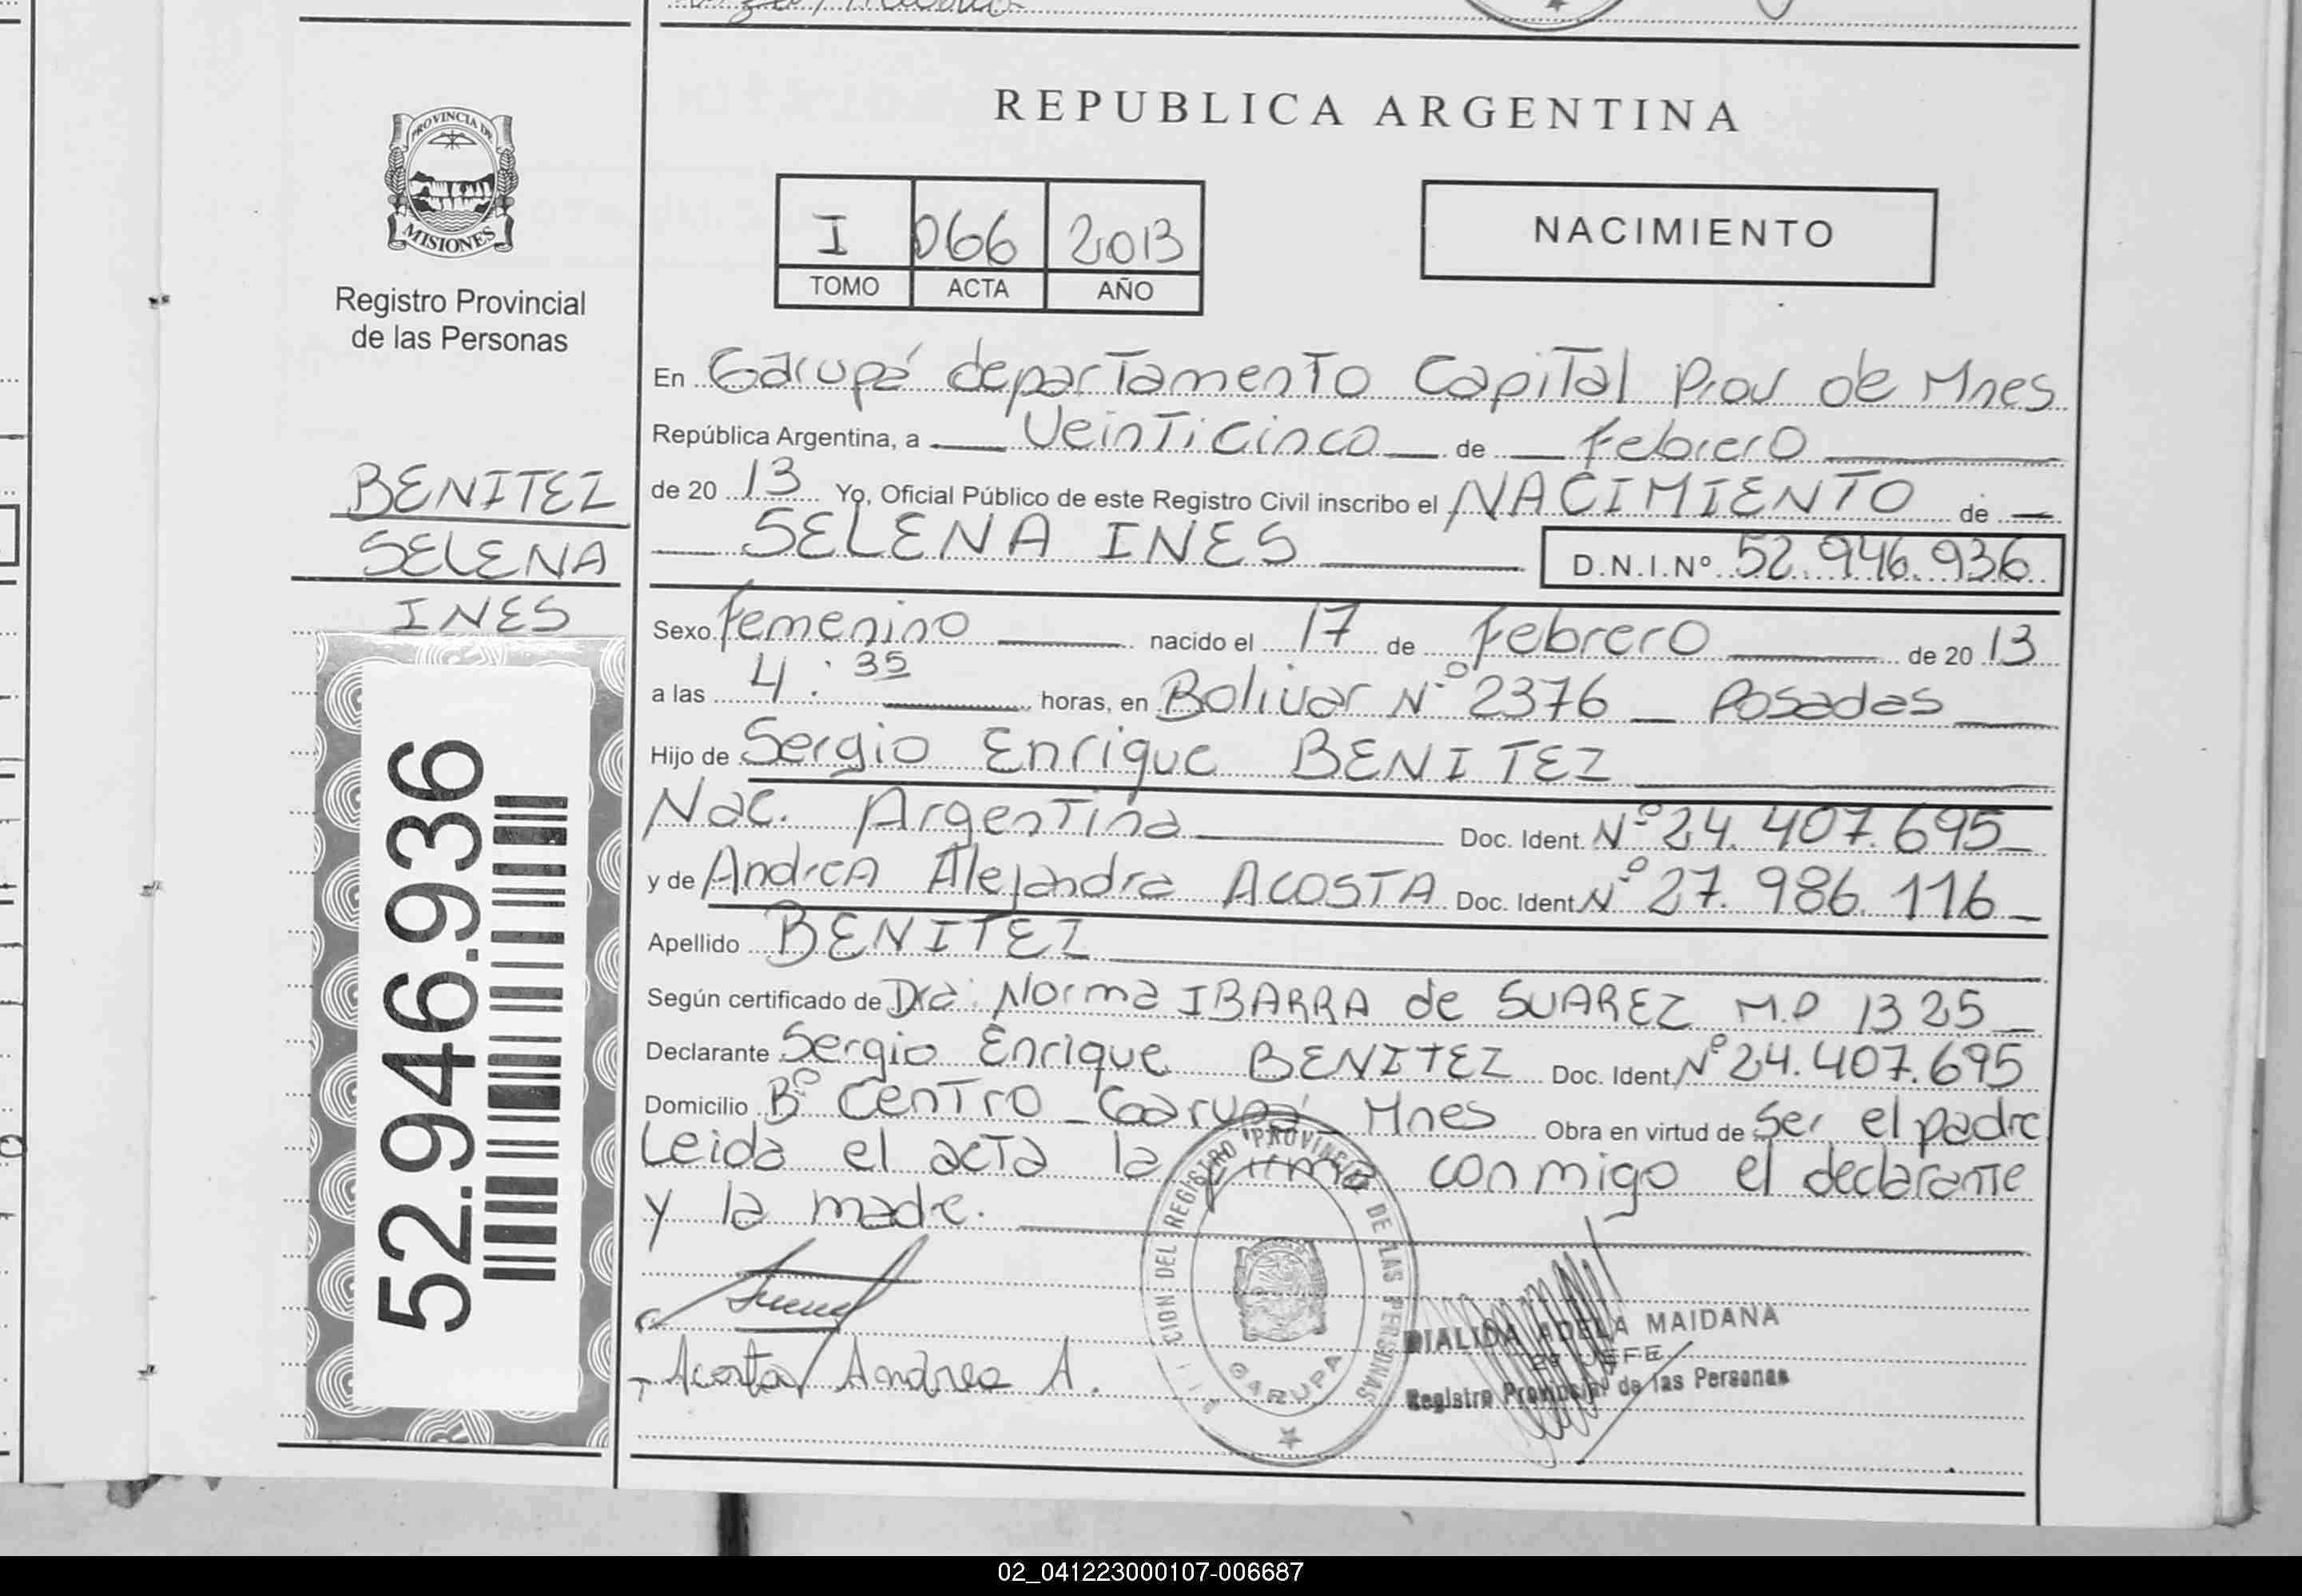 REPUBLICA ARGENTINA
PROVINCIA DE
MISIONES
Registro Provincial
de las Personas
I 066 2013
TOMO ACTA AÑO
NACIMIENTO
En Garupá departamento Capital Prov de Mnes
República Argentina, a Veinticinco de febrero
de 20 13 Yo, Oficial Público de este Registro Civil inscribo el NACIMIENTO de
SELENA INES D.N.I.Nº 52.946.936
BENITEZ
SELENA
INES
52.946.936
Sexo femenino nacido el 17 de febrero de 20 13
a las 4:35 horas, en Bolivar Nº 2376 _ Posadas
Hijo de Sergio Enrique BENITEZ
Nac. Argentina Doc. Ident. Nº 24.407.695
y de Andrea Alejandra ACOSTA Doc. Ident. Nº 27.986.116
Apellido BENITEZ
Según certificado de Dra. Norma IBARRA de SUAREZ M.P 1325
Declarante Sergio Enrique BENITEZ Doc. Ident. Nº 24.407.695
Domicilio Bº Centro _ Garupá _ Mnes Obra en virtud de ser el padre
Leida el acta la firma conmigo el declarante
y la madre.
Acosta Andrea A.
CION DEL REGISTRO PROVINCIAL DE LAS PERSONAS
GARUPA
ADELA MAIDANA
2º JEFE
Registro Provincial de las Personas
02_041223000107-006687